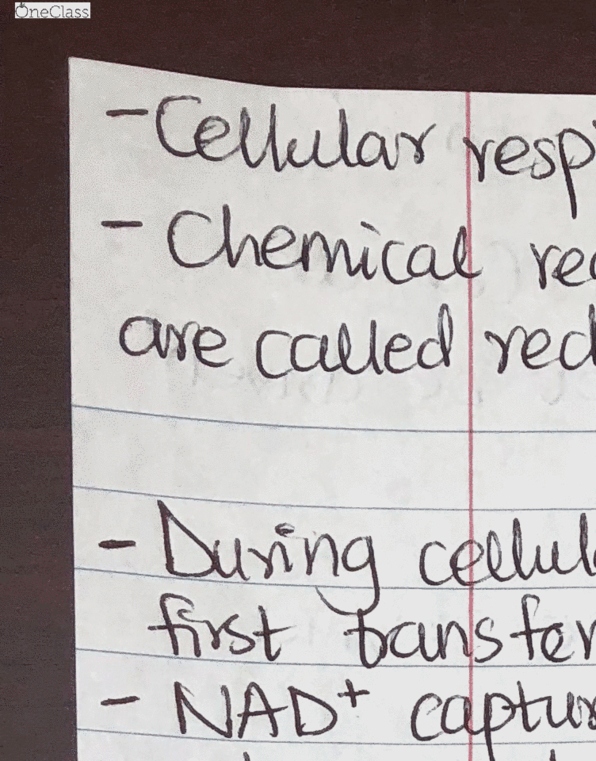 OneClass
- Cellular resp
- Chemical re
are called red
- During cellul
first transfer
- NAD+ captur